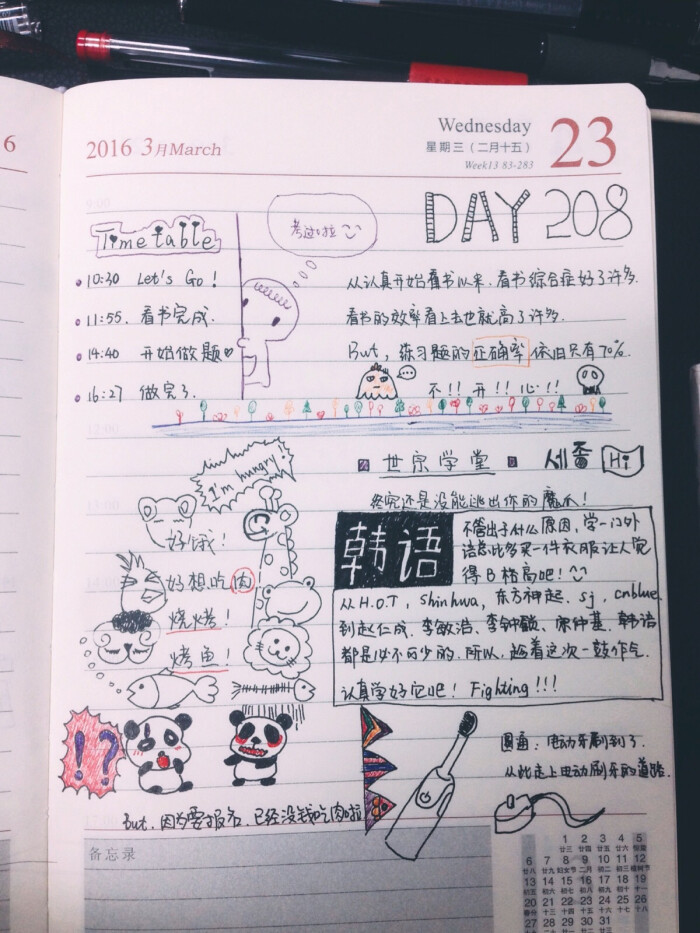 6
2016 3月March
Wednesday
星期三（二月十五）
Week13 83-283
23
9:00
DAY 208
Time table
考过啦
10:30 Let's Go!
11:55. 看书完成.
14:40 开始做题♡
16:27 做完了.
从认真开始看书以来, 看书综合症好了许多.
看书的效率看上去也就高了许多.
But, 练习题的正确率依旧只有70%.
不!! 开!! 心!!
12:00
I'm hungry!
好饿!
好想吃肉!
烧烤!
烤鱼!
世宗学堂 세종 Hi
终究还是没能逃出你的魔爪!
韩语
不管出于什么原因, 学一门外
语总比多买一件衣服让人觉
得B格高吧!
从H.O.T, shinhwa, 东方神起、sj, cnblue
到赵仁成、李敏浩、李钟硕、宋仲基, 韩语
都是必不可少的. 所以, 趁着这次一鼓作气.
认真学好它吧! Fighting!!!
!?
圆通: 电动牙刷到了.
从此走上电动刷牙的道路.
But, 因为要报名, 已经没钱吃肉啦
备忘录
1 2 3 4 5
6 7 8 9 10 11 12
13 14 15 16 17 18 19
20 21 22 23 24 25 26
27 28 29 30 31